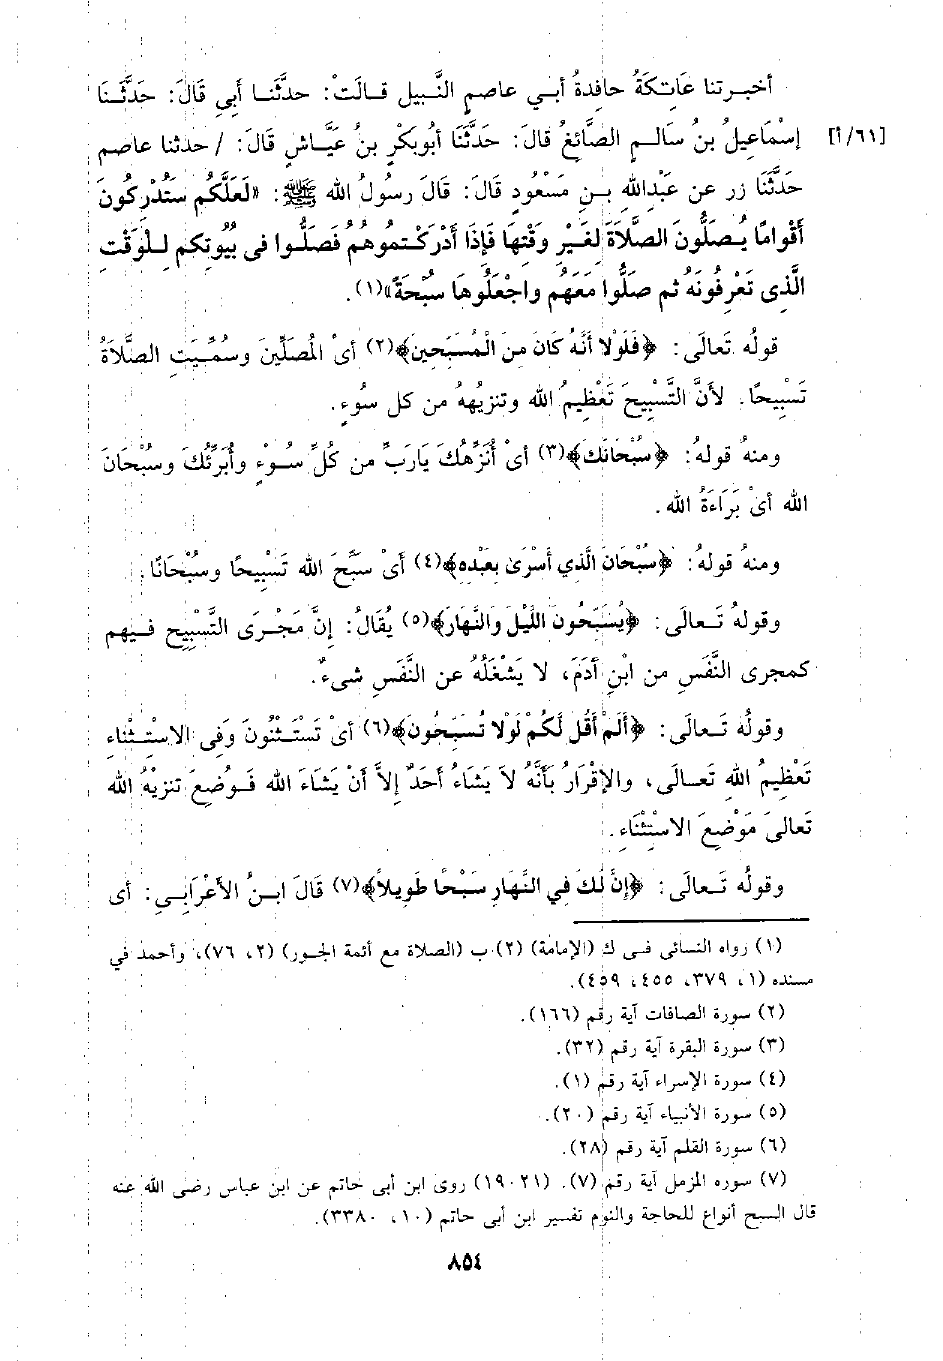 أخبـرتنا عَاتِكَةُ حافِدةُ أبـي عاصمٍ النَّبيل قـالَتْ: حدثَّنـا أَبِي قَالَ: حَدَّثَـنَا
[٦١/أ] إسْمَاعِيلُ بنُ سَالـمٍ الصَّائِغُ قالَ: حَدَّثَنَا أَبُوبَكْرٍ بنُ عَيَّاشٍ قَالَ: / حدثنا عاصم
حَدَّثَنَا زر عن عَبْدِالله بـنِ مَسْعُودٍ قَالَ: قَالَ رسولُ الله ﷺ: «لَعَلَّكُم سَتُدْرِكُونَ
أَقْوامًا يُـصَلُّون الصَّلاَةَ لغَيْرِ وَقْتِهَا فَإِذَا أَدْرَكْـتمُوهُمُ فَصَلُّـوا فى بُيُوتِكم لِلـوَقْتِ
الَّذِى تَعْرِفُونَهُ ثم صَلُّوا مَعَهُم واجْعَلُوهَا سُبْحَةً»(١).
قولُه تَعالَى: ﴿فَلَوْلا أَنَّهُ كَانَ مِنَ الْمُسَبِّحِين﴾(٢) أىْ المُصَلِّينَ وسُمِّيَتِ الصَّلاَةُ
تَسْبِيحًا. لأَنَّ التَّسْبِيحَ تَعْظِيمُ الله وتنزيُههُ من كل سُوءٍ.
ومنهُ قولهُ: ﴿سُبْحَانَكَ﴾(٣) أىْ أُنَزِّهُكَ يَارَبِّ من كُلِّ سُـوْءٍ وأُبَرِّئُكَ وسُبْحَانَ
الله أىْ بَرَاءَةُ الله.
ومنهُ قولهُ: ﴿سُبْحَانَ الَّذي أَسْرَىٰ بِعَبْدِهِ﴾(٤) أىْ سَبَّحَ الله تَسْبِيحًا وسُبْحَانًا.
وقولهُ تَـعالَى: ﴿يُسَبِّحُونَ اللَّيْلَ وَالنَّهَارَ﴾(٥) يُقَالُ: إنَّ مَجْرَى التَّسْبِيحِ فـيهم
كمجرى النَّفَسِ من ابْنِ آدَمَ، لا يَشْغَلُهُ عن النَّفَسِ شىءٌ.
وقولُه تَـعالَى: ﴿أَلَمْ أَقُل لَّكُمْ لَوْلا تُسَبِّحُونَ﴾(٦) أىْ تَسْتَـثْنُونَ وَفِى الاسْتِـثْناءِ
تَعْظِيمُ الله تَعـالَى، والإِقْرَارُ بأَنَّهُ لاَ يَشَاءُ أَحَدٌ إلاَّ أنْ يَشَاءَ الله فَـوُضِعَ تنزيْهُ الله
تَعالىَ مَوْضِعَ الاسْتِثْنَاءِ.
وقولُه تَـعالَى: ﴿إِنَّ لَكَ فِي النَّهَارِ سَبْحًا طَوِيلاً﴾(٧) قَالَ ابـنُ الأَعْرَابِـي: أى
(١) رواه النسائى فـى ك (الإمامة) (٢) ب (الصلاة مع أئمة الجـور) (٢، ٧٦)، وأحمد في
مسنده (١، ٣٧٩، ٤٥٥، ٤٥٩).
(٢) سورة الصافات آية رقم (١٦٦).
(٣) سورة البقرة آية رقم (٣٢).
(٤) سورة الإسراء آية رقم (١).
(٥) سورة الأنبياء آية رقم (٢٠).
(٦) سورة القلم آية رقم (٢٨).
(٧) سوره المزمل آية رقم (٧). (١٩٠٢١) روى ابن أبى حاتم عن ابن عباس رضى الله عنه
قال السبح أنواع للحاجة والنوم تفسير ابن أبى حاتم (١٠، ٣٣٨٠).
٨٥٤